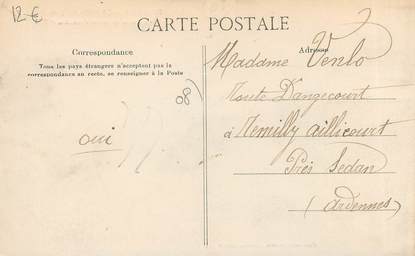 12 €
CARTE POSTALE
Correspondance
Tous les pays étrangers n'acceptant pas la
correspondance au recto, se renseigner à la Poste
08)
oui
Adresse
Madame Venlo
Route D'angecourt
à Remilly aillicourt
Près Sedan
(Ardennes)